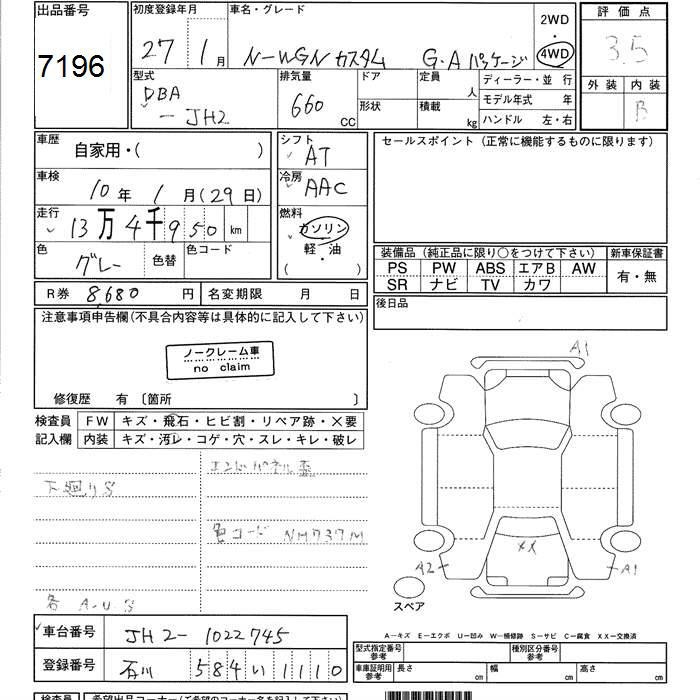 出品番号
7196
初度登録年月
27年 1月
車名・グレード
N-WGN カスタム G・A パッケージ
2WD
4WD
評価点
3.5
外装 内装
B
型式
DBA
-JH2
排気量
660 cc
ドア
形状
定員 人
積載 kg
ディーラー・並 行
モデル年式 年
ハンドル 左・右
車歴
自家用・( )
シフト
AT
車検
10年 1月(29日)
冷房
AAC
走行
13万4千950 km
燃料
ガソリン
軽・油
( )
色
グレー
色替
色コード
R券 8,680円
名変期限 月 日
セールスポイント (正常に機能するものに限ります)
装備品 (純正品に限り○をつけて下さい)
新車保証書
PS PW ABS エアB AW
SR ナビ TV カワ
有・無
後日品
注意事項申告欄(不具合内容等は具体的に記入して下さい)
ノークレーム車
no claim
修復歴 有 〔箇所 〕
検査員
記入欄
FW キズ・飛石・ヒビ割・リペア跡・×要
内装 キズ・汚レ・コゲ・穴・スレ・キレ・破レ
エンドパネル歪
下廻りS
色コード NH737M
各 A.U.S
A1
XX
A2
A1
スペア
A−キズ E−エクボ U−凹み W−補修跡 S−サビ C−腐食 XX−交換済
車台番号 JH2-1022745
登録番号 石川 584 い 1110
型式指定番号
参考
種別区分番号
参考
車庫証明用
参考
長さ cm
幅 cm
高さ cm
検査員
希望出品コーナー(ご希望のコーナー名を記入して下さい)